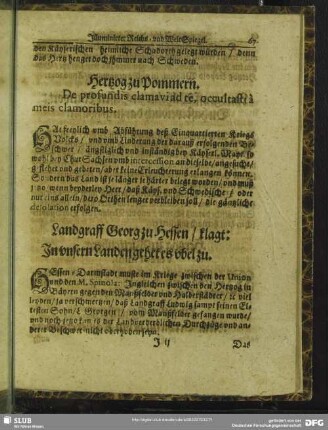 Illuminirter Reichs- vnd Welt-Spiegel. 67
den Käyserischen heimliche Schadorth gelegt würden / denn
das Hertz henget doch jhmmer nach Schweden.
Hertzog zu Pommern.
De profundis clamavi ad te, occultasti à
meis clamoribus.
GAr treulich vmb Abführung deß Einquartierten Kriegs
Volcks / vnd vmb Linderung der darauß erfolgenden Be-
schwer / ängstiglich vnd inständig bey Käyserl. Mayt. so
wohl bey Chur Sachsen vmb intercession an dieselbe / angesucht /
geflehet vnd gebeten / aber keine Erleuchterung erlangen können.
Sondern das Land ist je länger je härter belegt worden / vnd muß
wenn beyderley Heer / daß Käys. vnd Schwedische / oder
nur eins allein / diey Orthen lenger verbleiben soll / die gäntzliche
desolation erfolgen.
Landgraff Georg zu Hessen / klagt:
In vnsern Landen gehet es übel zu.
HEssen-Darmstadt muste im Kriege zwischen der Union
und den M. Spinola: Ingleichen zwischen den Hertzog in
Bäyern gegenden Manßfelder und Halberstädter / viel
leyden / ja verschmertzen / daß Landgraff Ludwig sampt seinen El-
testen Sohn / Georgen / vom Manßfelder gefangen wurde /
und noch jetzo kan es der Landverderblichen Durchzüge und an-
derer Beschwer nicht
J ij Das
SLUB
Wir führen Wissen.
http://digital.slub-dresden.de/
gefördert von der
Deutschen Forschungsgemeinschaft
DFG